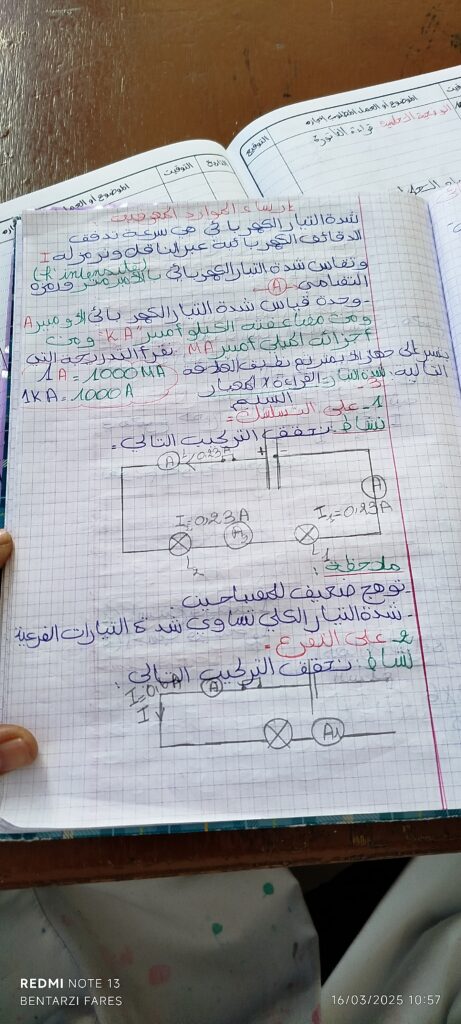 الموضوع او العمل المطلوب إنجازه
التوقيت
قراءة الفاتورة
التاريخ
التوقيت
الموضوع او العمل
إرساء الموارد المعرفية
شدة التيار الكهربائي هي سرعة تدفق
الدقائق الكهربائية عبر الناقل ونرمز له I
(l'intensité)
وتقاس شدة التيار الكهربائي
النظامي (A)
- وحدة قياس شدة التيار الكهربائي الأمبير A
ومن مضاعفته الكيلو أمبير "KA" ومن
أجزائه الميلي أمبير MA نقرأ التدريجة التي
يشير إلى
1A = 1000MA
التالية: شدة التيار = القراءة X العيار
السلم
1KA = 1000A
1- على التسلسل:
نشاط: نحقق التركيب التالي.
A 0,23A + -
A
I=0,23A I1=0,23A
A2
L2 L1
ملاحظة:
- توهج ضعيف للمصباحين.
- شدة التيار الكلي تساوي شدة التيارات الفرعية
2- على التفرع.
نشاط: نحقق التركيب التالي:
I=0,6A A
I
A1
REDMI NOTE 13
BENTARZI FARES
16/03/2025 10:57